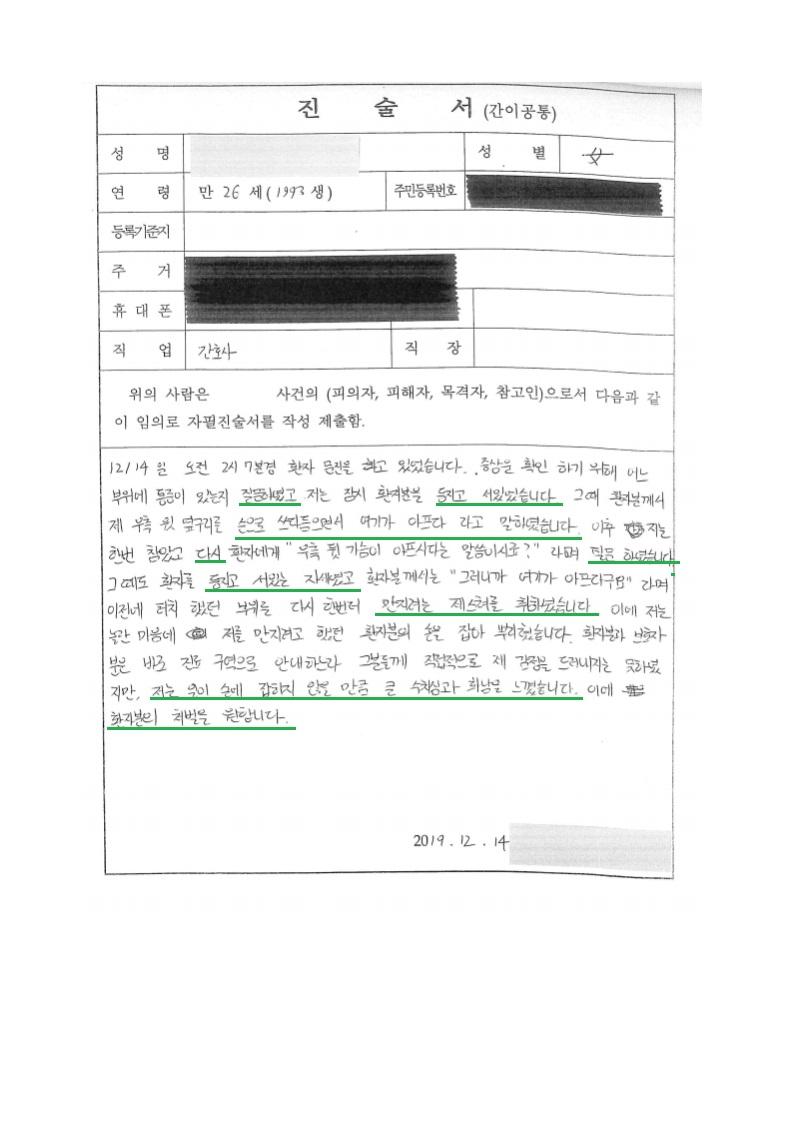 진 술 서 (간이공통)
성 명
성 별 女
연 령 만 26 세 (1993 생) 주민등록번호
등록기준지
주 거
휴 대 폰
직 업 간호사 직 장
위의 사람은 사건의 (피의자, 피해자, 목격자, 참고인)으로서 다음과 같
이 임의로 자필진술서를 작성 제출함.
12/14 일 오전 2시 7분경 환자 문진을 하고 있었습니다. 증상을 확인 하기 위해 어느
부위에 통증이 있는지 질문하였고 저는 잠시 환자분을 등지고 서있었습니다. 그때 환자분께서
제 우측 윗 옆구리를 손으로 쓰다듬으면서 여기가 아프다 라고 말하였습니다. 이후 저는
한번 참았고 다시 환자에게 "우측 뒷 가슴이 아프시다는 말씀이시죠?" 라며 하였습니다
그때도 환자를 등지고 서있는 자세였고 환자분께서는 "그러니까 여기가 아프다구요" 라며
이전에 터치 했던 부위를 다시 한번더 만지려는 제스처를 취하셨습니다 이에 저는
놀란 마음에 저를 만지려고 했던 환자분의 손을 잡아 뿌리쳤습니다. 환자분과 보호자
분을 바로 진료 구역으로 안내하느라 그분들께 직접적으로 제 감정을 드러내지는 못하였
지만, 저는 일이 손에 잡히지 않을 만큼 큰 수치심과 희롱을 느꼈습니다. 이에
환자분의 처벌을 원합니다.
2019 . 12 . 14